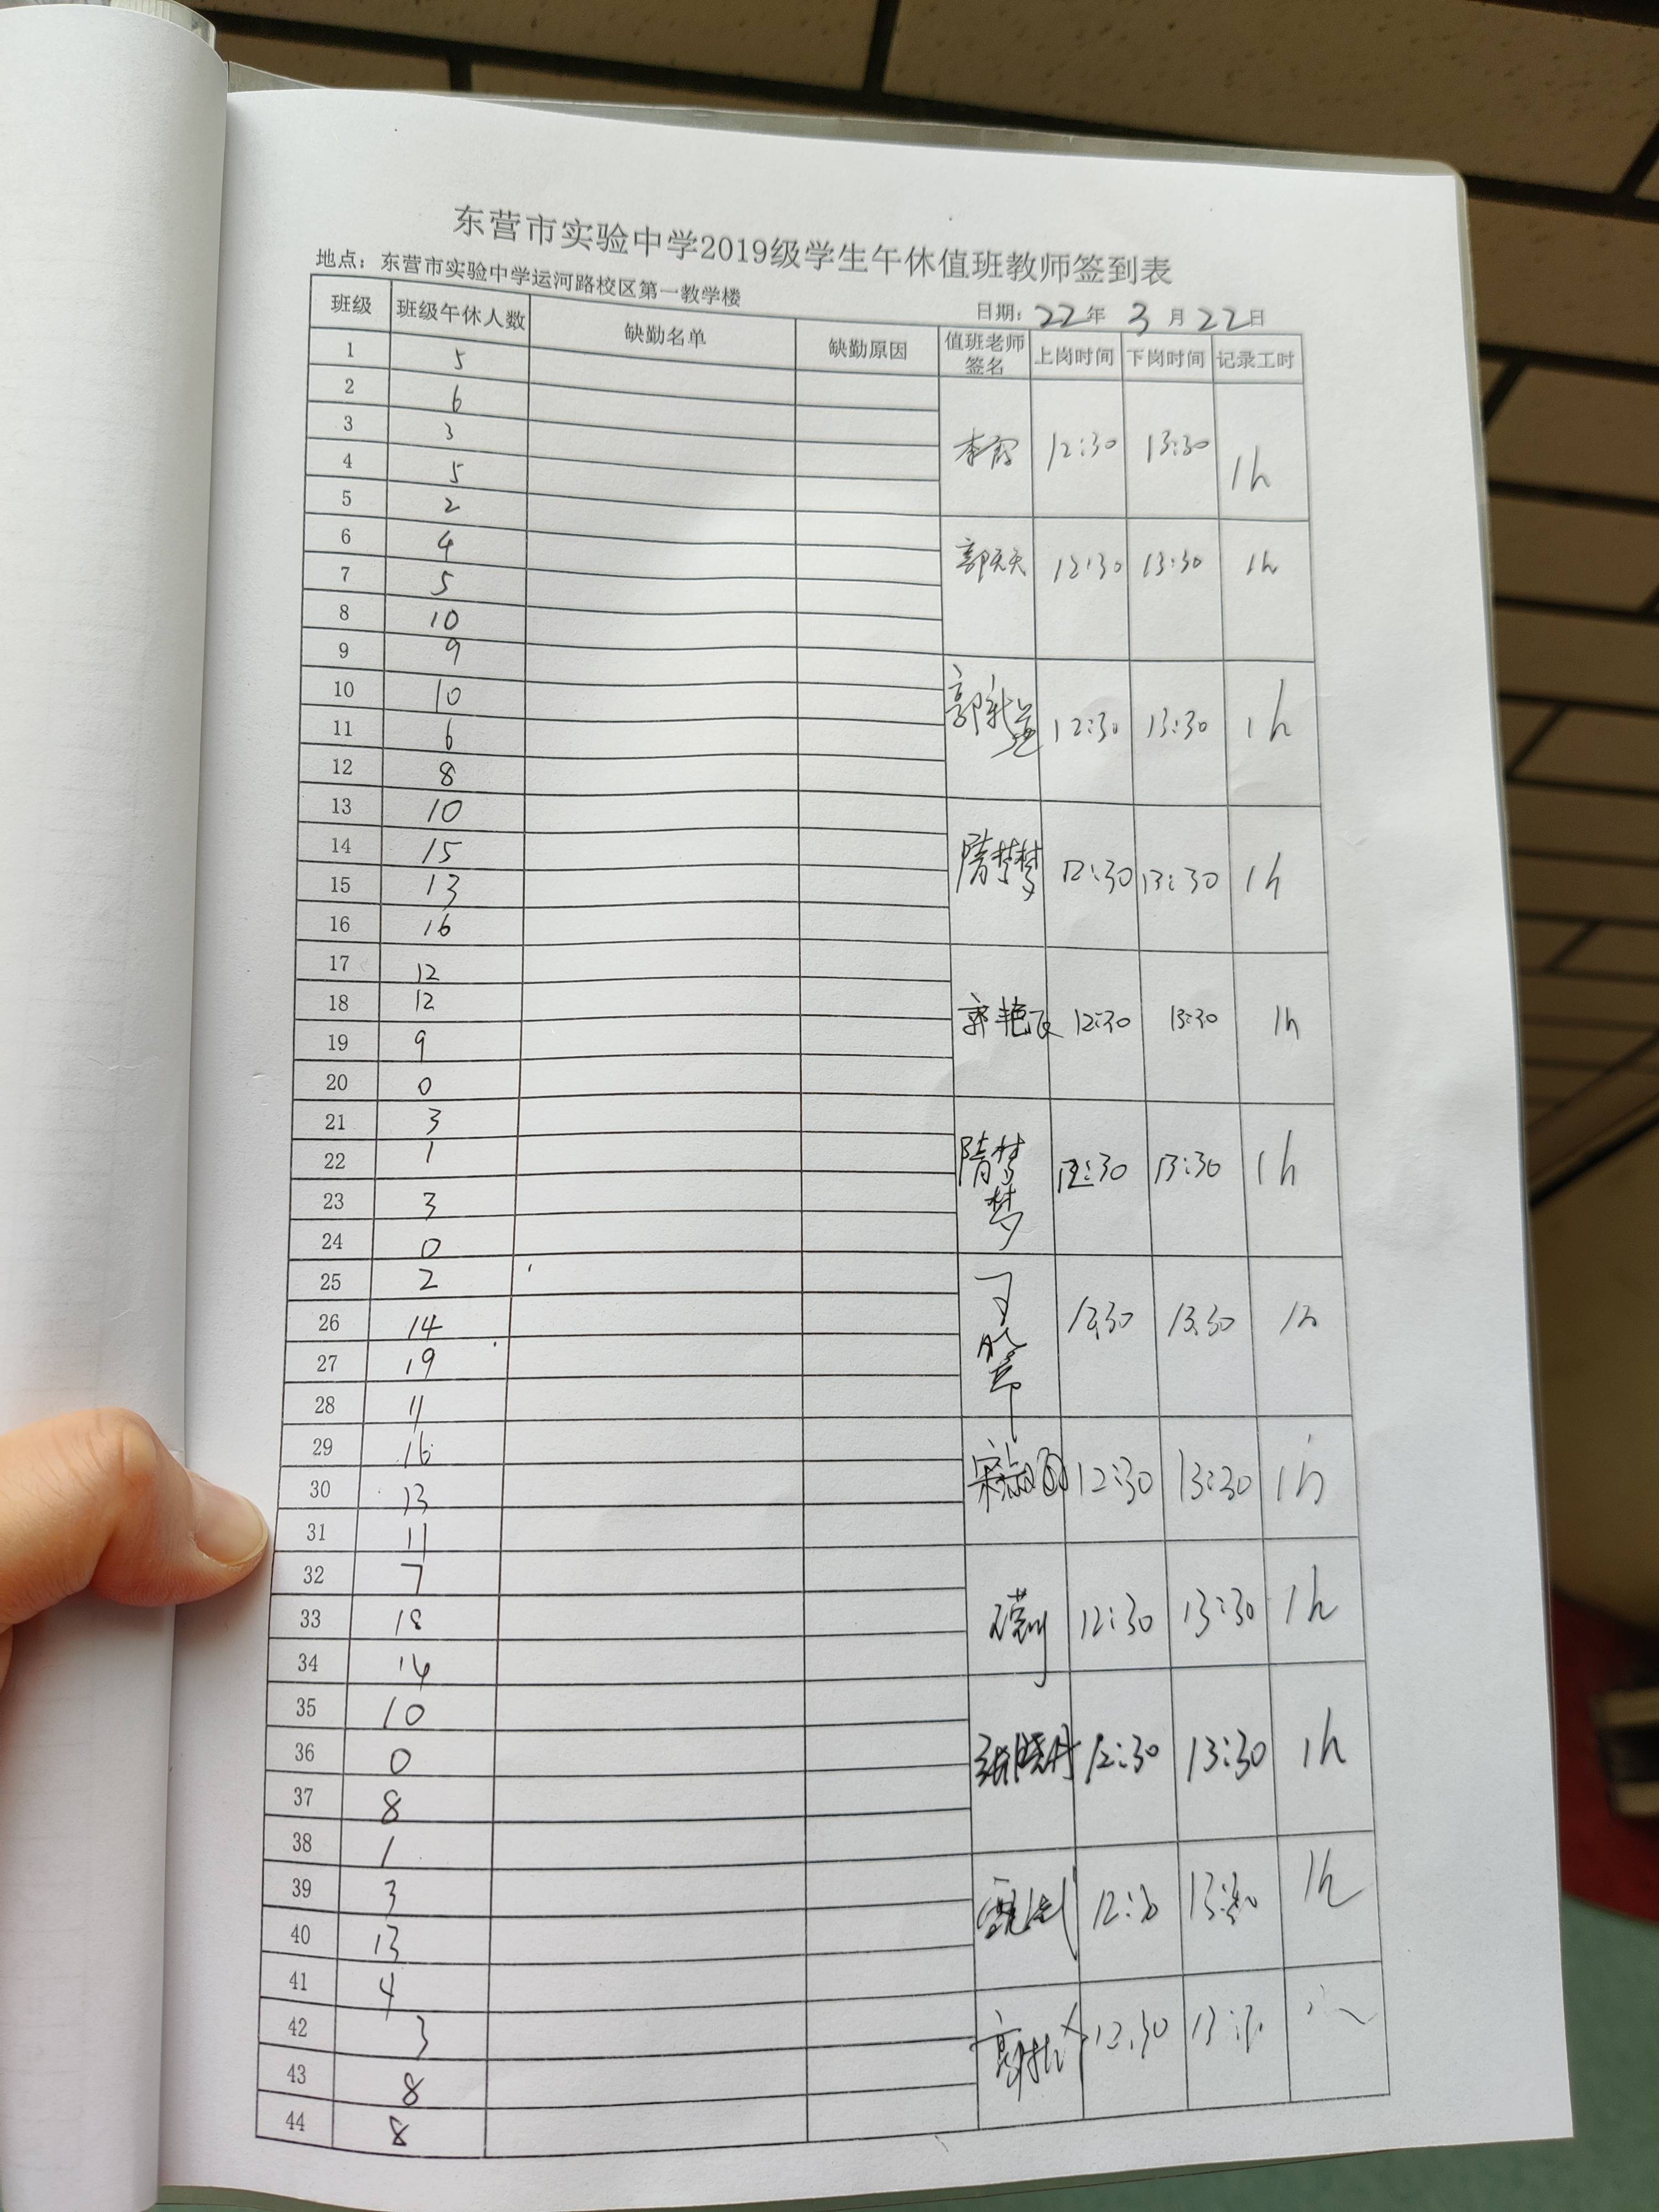 东营市实验中学2019级学生午休值班教师签到表
地点：东营市实验中学运河路校区第一教学楼
日期：22年 3月22日
班级 班级午休人数 缺勤名单 缺勤原因 值班老师签名 上岗时间 下岗时间 记录工时
1 5
2 6
3 3
4 5 李霞 12:30 13:30 1h
5 2
6 4
7 5 郭天天 12:30 13:30 1h
8 10
9 9
10 10
11 6 12:30 13:30 1h
12 8
13 10
14 15
15 13 隋梦梦 12:30 13:30 1h
16 16
17 12
18 12
19 9 郭艳飞 12:30 13:30 1h
20 0
21 3
22 1
23 3 隋梦梦 12:30 13:30 1h
24 0
25 2
26 14 12:30 13:30 1h
27 19
28 11
29 16
30 13 12:30 13:30 1h
31 11
32 7
33 18 12:30 13:30 1h
34 14
35 10
36 0 张晓丹 12:30 13:30 1h
37 8
38 1
39 3
40 13 12:30 13:30 1h
41 4
42 3
43 8 12:30
44 8